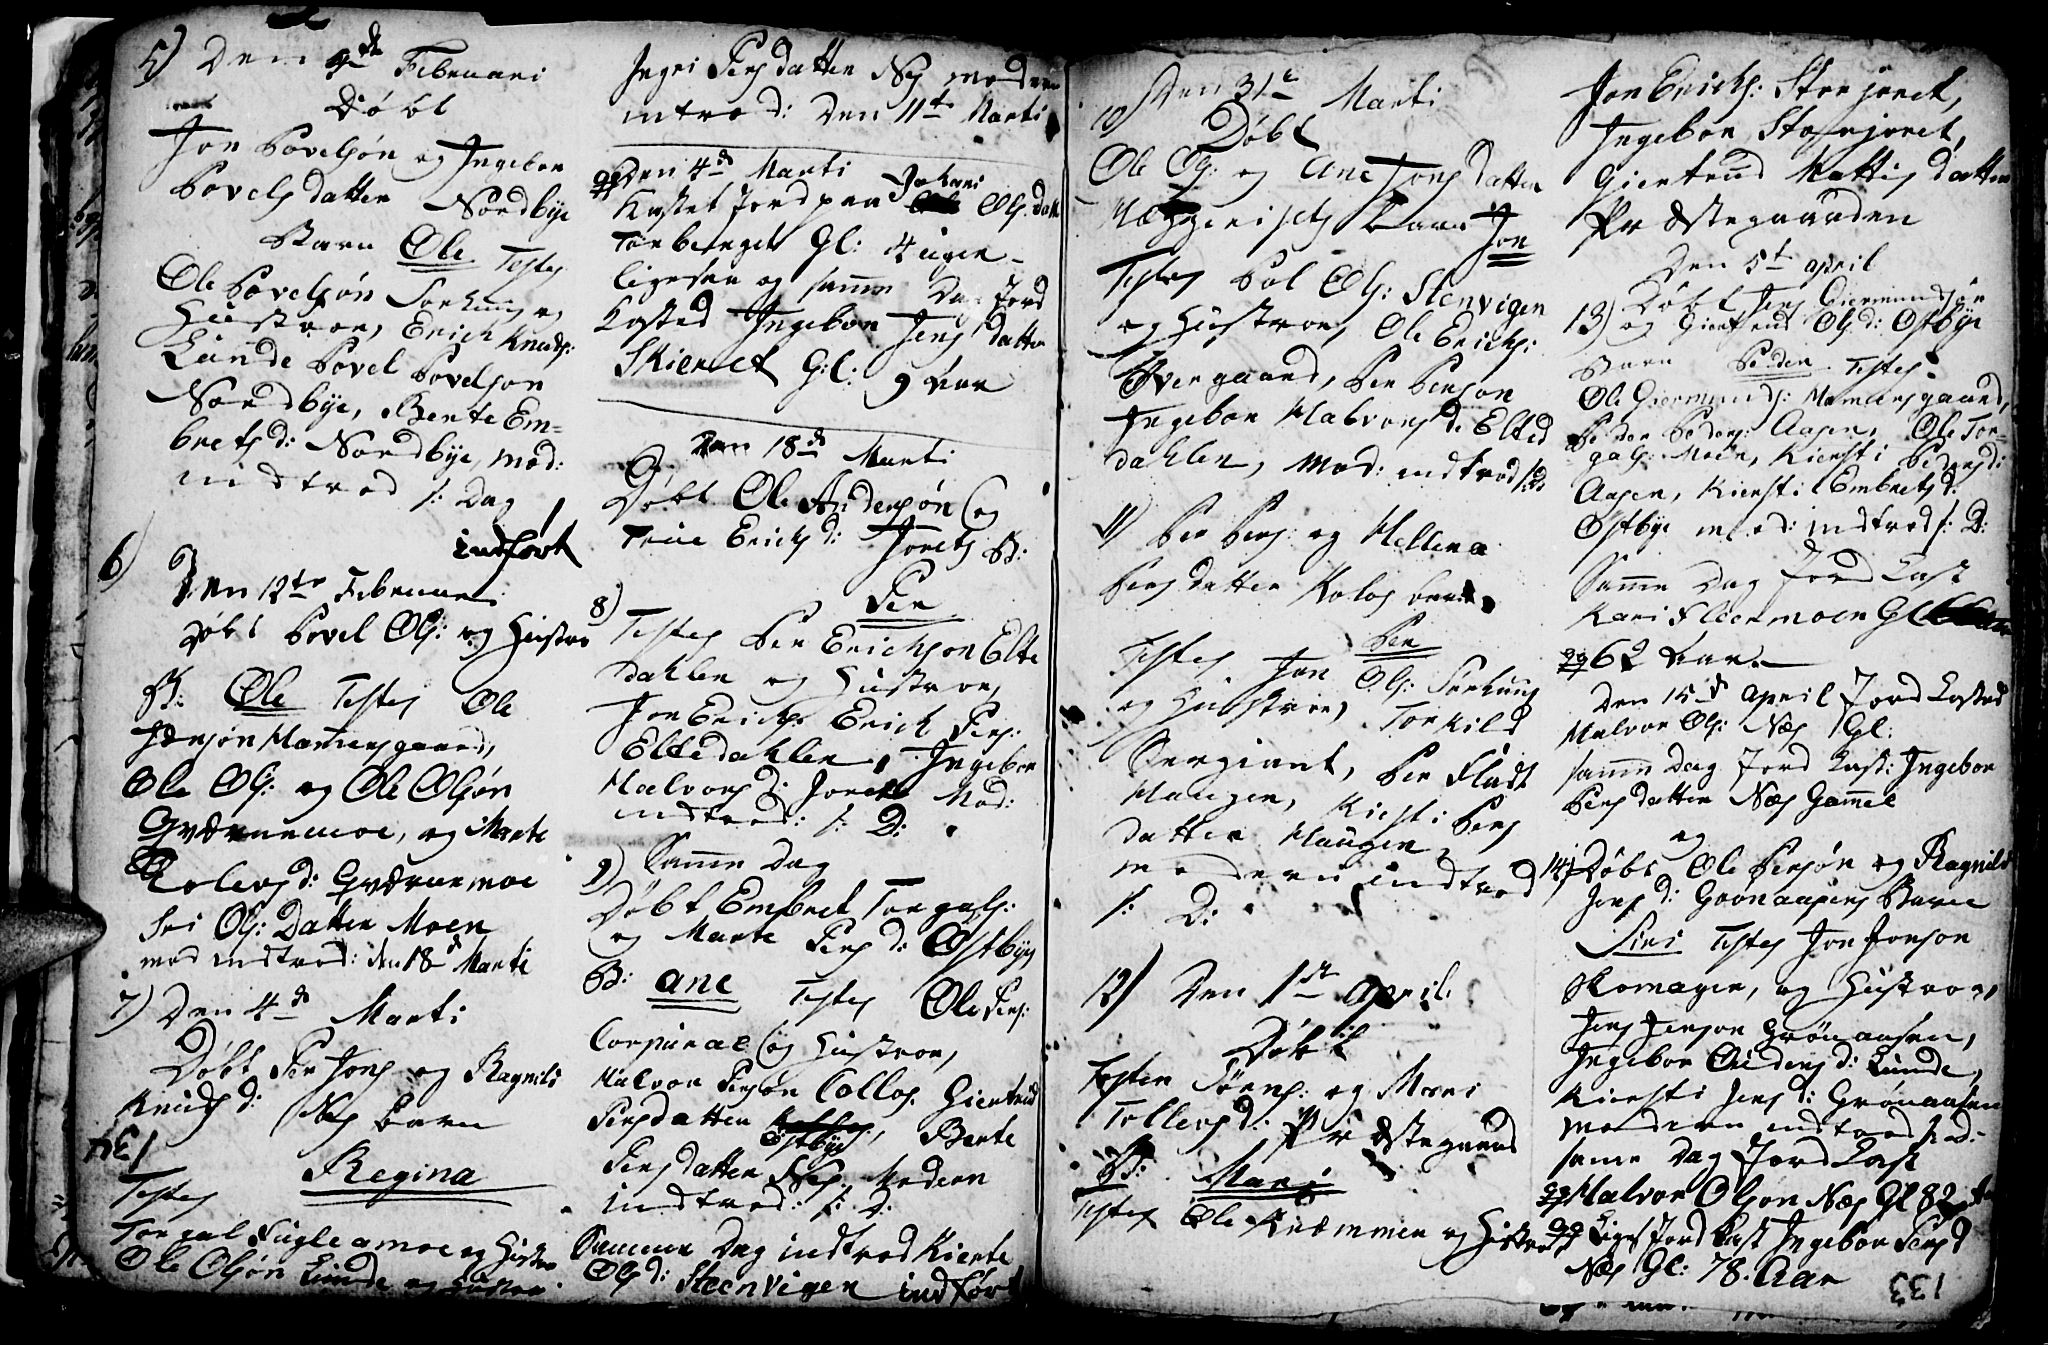 5) Den 9de Februari
Döbt
Jon Povelsön og Ingebor
Povels datter Nordbye
Barn Ole Testes
Ole Povelsön Sorhuus og
Hustroe, Erich Knuds:
Lunde Povel Povelson
Nordbye, Berte Em=
brets d: Nordbye, mod:
indtrod s: Dag
indfört
6) Den 12te Februari
Döbt Povel Ols: og Hustroe
B: Ole Testes Ole
Hammersgaard,
Ole Ols: og Ole Olsön
Qværnemoe, og Marte
Qværnemoe
Siri Ols: Datter Moen
mod indtrod: den 18d Marti
7) Den 4de Marti
Döbt Per Jons og Ragnild
Knuds d: Nes Barn
134
Regina
Testes
Torgal Fugleamoe og Hustroe
Ole Olsön Lunde og Hustroe
Ingri Pers datter Nes modren
introd: Den 11te Marti
Den 4de Marti
Kastet Jord paa Johani Ols. datt
Torberget Gl: 4 uger
ligesaa og samme Dag Jord
Kasted Ingebor Jens datter
Skieret G:l: 9 Aar
Den 18de Marti
Döbt Ole Andersön og
Trine Erichs d: Jorets B:
8) Per
Testes Per Erichson Elte
dahlen og Hustroe,
Jon Erichs: Erich Pers:
Eltedahlen, Ingebor
Halvors d: Joret Mod:
indtrod: s: D:
9) Samme Dag
Döbt Embret Torgals:
og Marte Pers d: Östbyes
B: Ane Testes Ole Pers:
Corporal og Hustroe,
Halvor Persön Collos. Giertrud
Persdatter Östbye, Berte
Persdatter Nes, Modern
indtrod: s: D:
Samme Dag indtrod Kierte
Ols d: Steenvigen indfört
10) Den 31te Marti
Döbt
Ole Ols: og Ane Jons datter
Barn Jon
Testes Pol Ols: Stenvigen
og Hustroe, Ole Erichs:
Övergaard, Per Person
Ingebor Halvors d: Elted
dahlen, Mod: indtrod s: D:
11) Per Pers: og Hellena
Pers datter Kolos barn
Per
Testes Jon Ols: Sorhuus
og Hustroe, Torkild
Sergiant, Per Flödt
Haugen, Kiersti Pers
datter Haugen,
modern indtrod
s: D:
12) Den 1ste April
Döbt
Tosten Sörens: og Mari
Tollevs d: Præstegaard
B: Mari
Testes Ole Kræmmer og Hustroe
Jon Erichs: Storjoret,
Ingebor Storjoret,
Giertrud Mattis datter
Præstegaarden
Den 5te april
13) Döbt Jens Giermundsön
og Giertrud Ols d: Östbye
Barn Peder Testes
Ole Giermunds: Hammersgaard,
Peder Peders: Aasen, Ole Tor=
gals: Moen, Kiersti Peders d:
Aasen, Kiersti Embrets d:
Östbye mod: indtrod s: D:
Samme Dag Jord Kast
Kari Fleermoen Gl
62 Aar
Den 15de April Jord Kasted
Halvor Ols: Nes Gl:
samme Dag Jord Kast: Ingebor
Pers datter Nes Gammel
og
14) Döbt Ole Persön og Ragnild
Jons d: Grönaasens Barn
Siri Testes Jon Jonson
Romagen, og Hustroe,
Jens Jenson Grönaasen,
Ingebor Anders d: Lunde,
Kiersti Jens d: Grönaasen
modren indtrod s: D:
samme Dag Jord Kast
Halvor Olson Nes Gl 82 Aar
Liges Jord Kast Ingebor Pers d
Nes Gl: 78. Aar
133